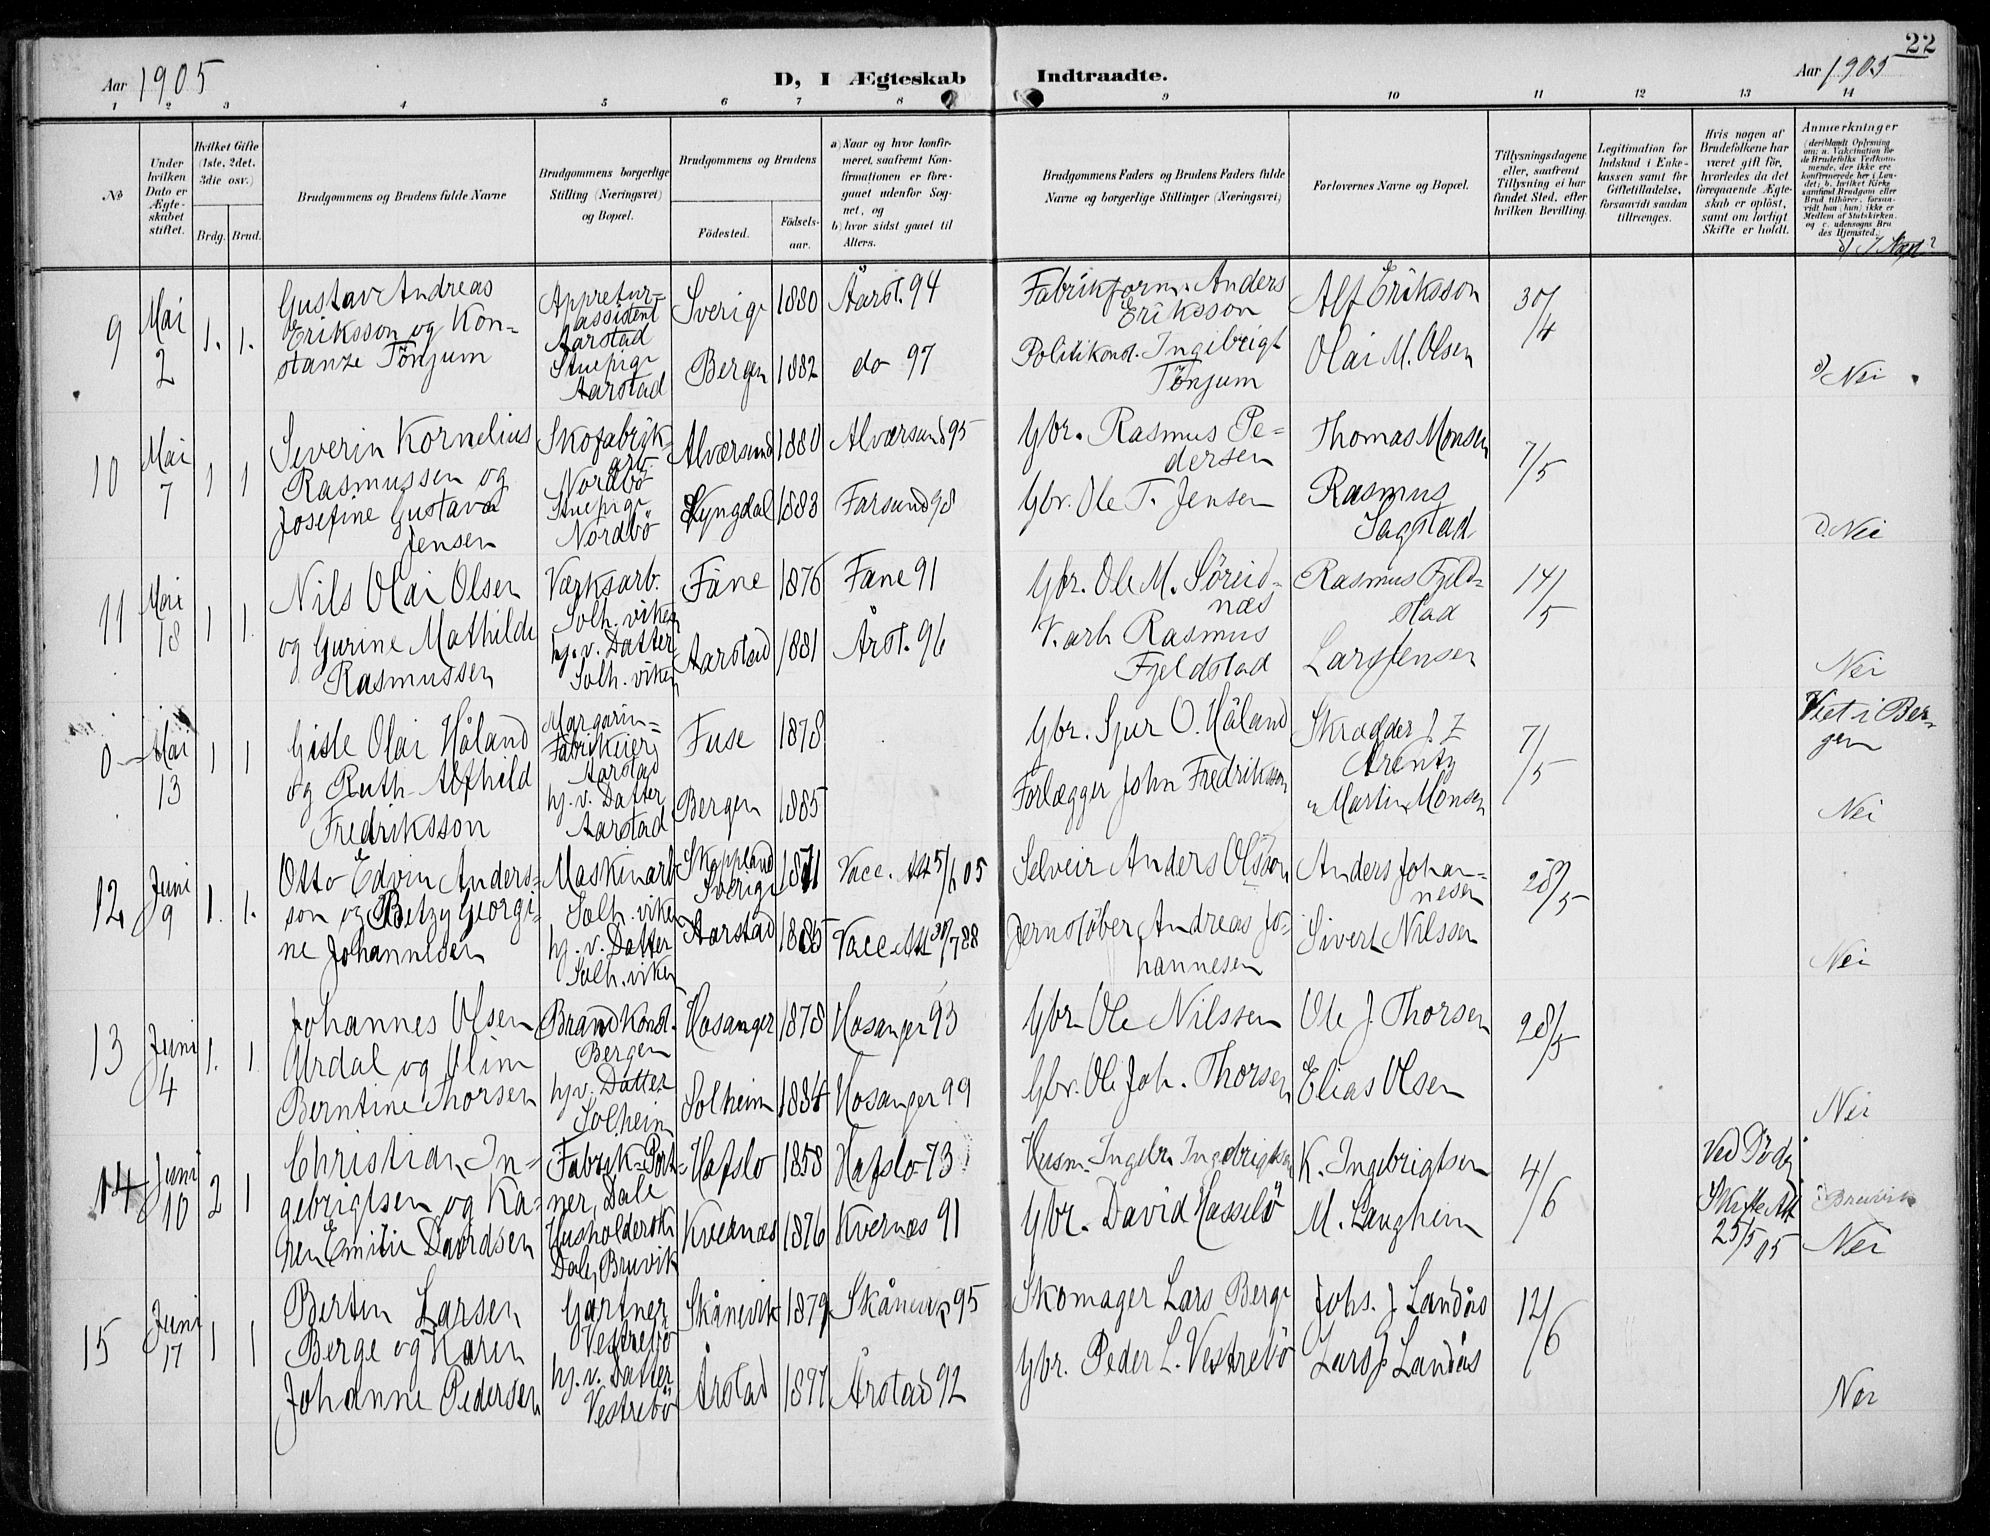 22
Aar 1905
D, I Ægteskab Indtraadte.
Aar 1905
1 2 3 4 5 6 7 8 9 10 11 12 13 14
No
Under hvilken Dato er Ægteskabet stiftet.
Hvilket Gifte (1ste, 2det, 3die osv.)
Brdg. Brud.
Brudgommens og Brudens fulde Navne
Brudgommens borgerlige Stilling (Næringsvei) og Bopæl.
Brudgommens og Brudens
Fødested.
Fødselsaar.
a) Naar og hvor konfirmeret, saafremt Konfirmationen er foregaaet udenfor Sognet, og
b) hvor sidst gaaet til Alters.
Brudgommens Faders og Brudens Faders fulde Navne og borgerlige Stillinger (Næringsvei)
Forlovernes Navne og Bopæl.
Tillysningsdagene eller, saafremt Tillysning ei har fundet Sted, efter hvilken Bevilling.
Legitimation for Indskud i Enkekassen samt for Giftetilladelse, forsaavidt saadan tiltrænges.
Hvis nogen af Brudefolkene har været gift før, hvorledes da det foregaaende Ægteskab er opløst, samt om lovligt Skifte er holdt.
Anmerkninger (deriblandt Oplysning om: a. Vakcination for de Brudefolks Vedkommende, der ikke ere konfirmerede her i Landet; b. hvilket Kirkesamfund Brudgom eller Brud tilhører, forsaavidt han (hun) ikke er Medlem af Statskirken, og c. udensogns Brudes Hjemsted.)
9
Mai
2
1. 1.
Gustav Andreas
Eriksson og Kon-
stanze Tönjum
Appretur-
assistent
Aarstad
Stuepige
Aarstad
Sverige 1880 Aarst. 94
Bergen 1882 do 97
Fabrikform. Anders
Eriksson
Politikonst. Ingebrigt
Tönjum
Alf Eriksson
Olai M. Olsen
30/4
Nei
10
Mai
7
1 1
Severin Kornelius
Rasmussen og
Josefine Gustava
Jensen
Skofabrik-
arb.
Nordbö
Stuepige
Nordbö
Alværsund 1880 Alværsund 95
Lyngdal 1883 Farsund 98
Gbr. Rasmus Pe-
dersen
Gbr. Ole T. Jensen
Thomas Monsen
Rasmus
Sagstad
7/5
Nei
11
Mai
18
1 1.
Nils Olai Olsen
og Gurine Mathilde
Rasmussen
Værksarb.
Solh. viken
hj. v. Datter
Solh. viken
Fane 1876 Fane 91
Aarstad 1881 Årst. 96
Gbr. Ole M. Söreid-
næs
V. arb Rasmus
Fjeldstad
Rasmus Fjeld-
stad
Lars Jensen
14/5
Nei
0
Mai
13
1 1
Gisle Olai Håland
og Ruth Alfhild
Fredriksson
Margarin-
Fabrikeier
Aarstad
hj. v. Datter
Aarstad
Fuse 1878
Bergen 1885
Gbr. Sjur O. Håland
Forlægger John Fredriksson
Skrædder J. Z
Arentz
" Martin Monsen
7/5
Viet i Ber-
gen
Nei
12
Juni
9
1. 1.
Otto Edvin Anders-
son og Betzy Georgi-
ne Johannesen
Maskinarb
Solh. viken
hj. v. Datter
Solh. viken
Skappland
Sverige 1871 Vacc. Att 5/6 05
Aarstad 1885 Vacc Att 30/7 88
Selveier Anders Olsson
Jernstöber Andreas Jo-
hannesen
Anders Johan-
nesen
Sivert Nilssen
28/5
Nei
13
Juni
4
1. 1
Johannes Olsen
Urdal og Olim
Berntine Thorsen
Brandkonst.
Bergen
hj. v. Datter
Solheim
Hosanger 1878 Hosanger 93
Solheim 1884 Hosanger 99
Gbr. Ole Nilssen
Gbr. Ole Joh. Thorsen
Ole J. Thorsen
Elias Olsen
28/5
Nei
14
Juni
10
2 1
Christian In-
gebrigtsen og Ka-
ren Emilie Davidsen
Fabrik-Port-
ner, Dale
Husholderske
Dale, Bruvik
Hafslo 1858 Hafslo 73
Kvernæs 1876 Kvernæs 91
Husm. Ingebr. Ingebrigtsen
Gbr. David Hasselö
K. Ingebrigtsen
M. Langhein
4/6
Ved Död
Skifte Att
25/5 05
Bruvik
Nei
15
Juni
17
1 1
Bertin Larsen
Berge og Karen
Johanne Pedersen
Gartner
Vestrebö
hj. v. Datter
Vestrebö
Skånevik 1879 Skånevik 95
Årstad 1897 Årstad 92
Skomager Lars Berge
Gbr. Peder L. Vestrebö
Johs. J. Landås
Lars J. Landås
12/6
Nei